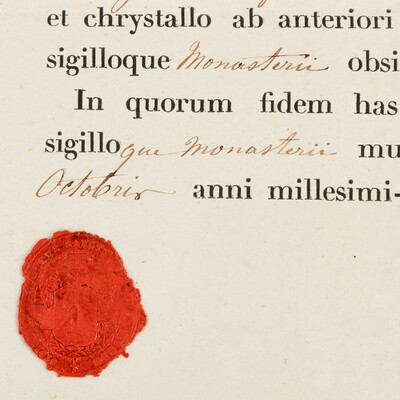 et chrystallo ab anteriori
sigilloque Monasterii obsi
In quorum fidem has
sigilloque Monasterii mu
Octobris anni millesimi-